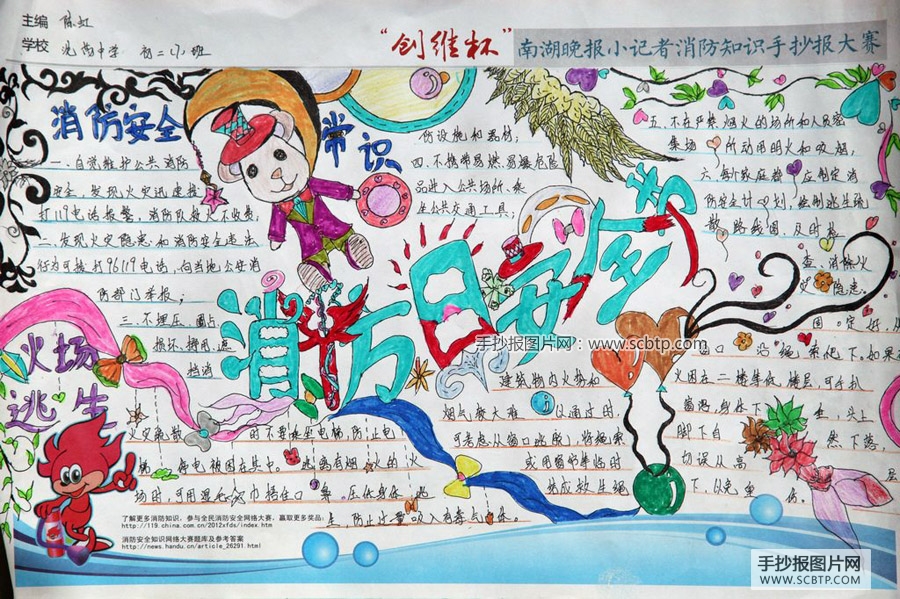 主编 陈虹
学校 中学 初二(1)班
"创维杯" 南湖晚报小记者消防知识手抄报大赛
消防安全常识
一、自觉维护公共消防
安全,发现火灾迅速拨
打119电话报警,消防队救火不收费
二、发现火灾隐患和消防安全违法
行为可拨打96119电话,向当地公安消
防部门举报;
三、不埋压、圈占、
损坏、挪用、遮
挡消
防设施和器材;
四、不携带易燃易爆危险
品进入公共场所、乘
坐公共交通工具;
五、不在严禁烟火的场所和人员密
集场所动用明火和吸烟;
六、每个家庭都应制定消
防安全计划,绘制逃生疏
散路线图,及时检
查、消除火
灾隐患。
消防日安全
手抄报图片网:www.scbtp.com
火场逃生
火灾疏散时不要乘坐电梯,防止电
梯停电被困在其中。逃离有烟火的火
场时,可用湿毛巾捂住口鼻,压低身体逃
生,防止过量吸入有毒气体。
建筑物内火势和
烟气极大难以通过时
可考虑从窗口
或用窗帘
成救生绳
固定好,从
窗口沿绳索低下。如果
火困在二楼等低楼层,可手扒
窗沿,身体下垂,头上
脚下自然下落
切误从高层
下,以免重伤。
了解更多消防知识,参与全民消防安全网络大赛,赢取更多奖品:
http://119.china.com.cn/2012xfds/index.htm
消防安全知识网络大赛题库及参考答案
http://news.handu.cn/article_26291.html
手抄报图片网
WWW.SCBTP.COM